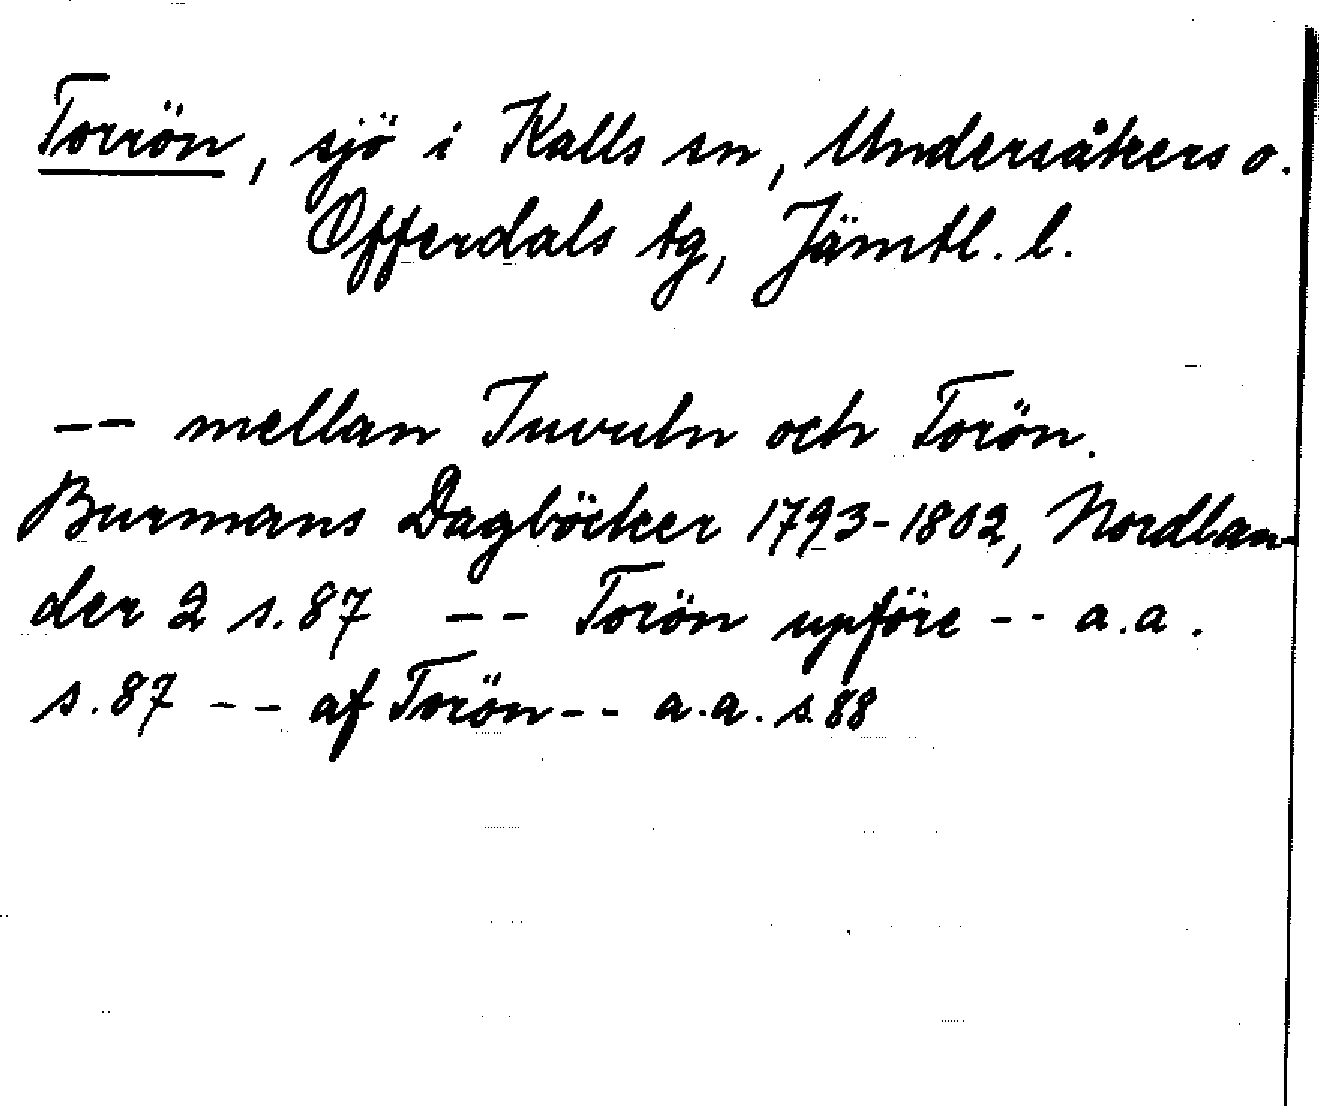 Torrön, sjö i Kalls sn, Undersåkers o.
Offerdals tg, Jämtl. l.
-- mellan Juvuln och Torön.
Burmans Dagböcker 1793-1802, Nordlan-
der 2 s. 87 -- Torön upföre -- a.a.
s. 87 -- af Torön -- a.a. s. 88